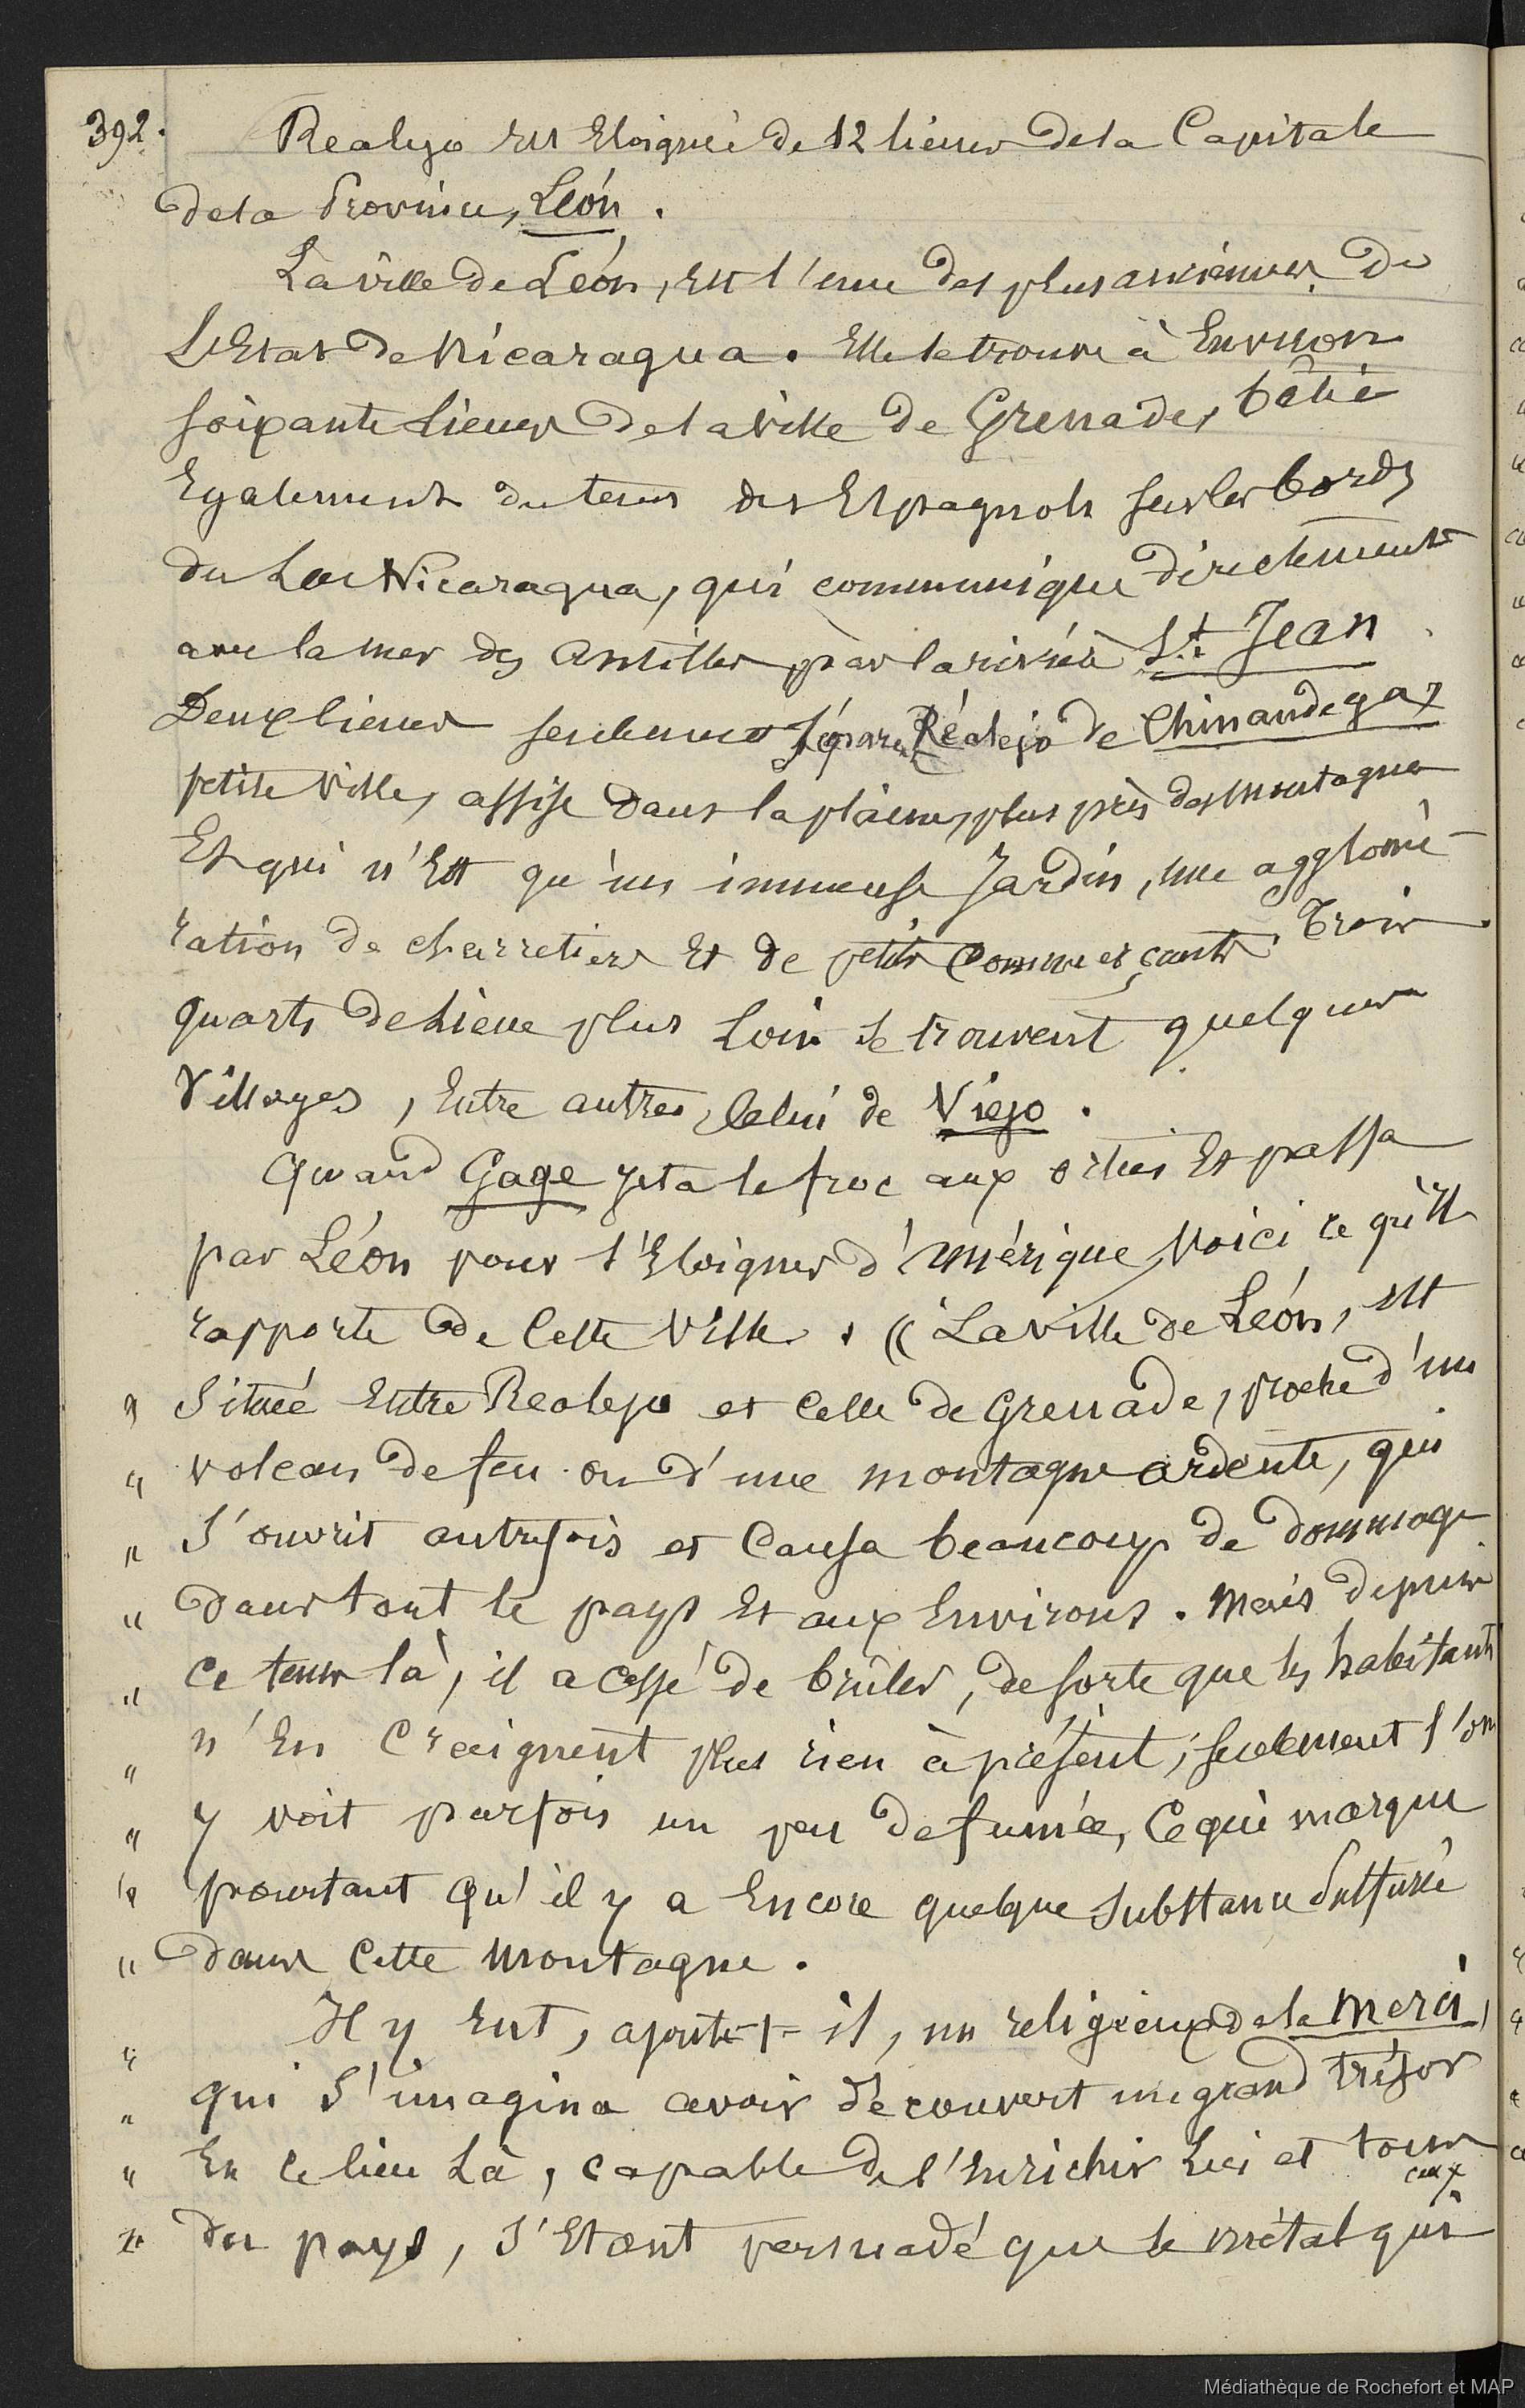 392. Realejo est Eloignée de 12 lieues de la Capitale
de la Province, León.
La ville de León, est l'une des plus anciennes de
L'Etat de Nicaragua. Elle se trouve à Environ
soixante Lieues de la ville de Grenade, bâtie
Egalement du tems des Espagnols sur les bords
du Lac Nicaragua, qui communique directement
avec la mer des Antilles par la rivière St. Jean.
Deux lieues seulement séparent Réalejo de Chinandega,
petite ville, assise dans la plaine, plus près des montagnes
Et qui n'Est qu'un immense Jardin, une agglomé-
ration de charretiers Et de petits commerçants. Trois
quarts de Lieue plus Loin se trouvent quelques
Villages, Entre autres, Celui de Viejo.
Quand Gage jeta le froc aux orties Et passa
par Léon pour s'Eloigner d'Amérique, Voici ce qu'il
rapporte de Cette Ville. « La ville de León, est
" Située Entre Realejo et Celle de Grenade, proche d'un
" volcan de feu ou d'une montagne ardente, qui
" S'ouvrit autrefois et Causa beaucoup de dommage
" dans tout le pays Et aux Environs. Mais depuis
" Ce tems là, il a cessé de brûler, de sorte que les habitants
" n'En Craignent plus rien à présent; seulement l'on
" y voit parfois un peu de fumée, Ce qui marque
" pourtant qu'il y a Encore quelque Substance sulfurée
" dans Cette Montagne.
" Il y Eut, ajoute-t-il, un religieux de la Merci,
" qui S'imagina avoir découvert un grand trésor
" En Ce lieu Là, capable de l'Enrichir Lui et tous
ceux
" du pays, S'Etant persuadé que le métal qui
Médiathèque de Rochefort et MAP